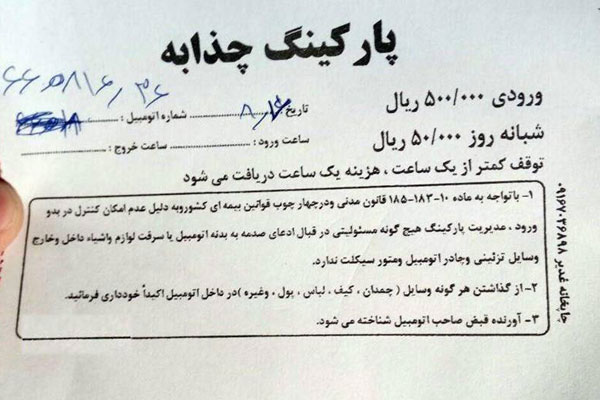 پارکینگ چذابه
ورودی ۵۰۰/۰۰۰ ریال
شبانه روز ۵۰/۰۰۰ ریال
تاریخ ۸/۶ شماره اتومبیل :
ساعت ورود : ساعت خروج :
توقف کمتر از یک ساعت ، هزینه یک ساعت دریافت می شود
۱- باتواجه به ماده ۱۰-۱۸۳-۱۸۵ قانون مدنی ودرچهار چوب قوانین بیمه ای کشوروبه دلیل عدم امکان کنترل در بدو
ورود ، مدیریت پارکینگ هیچ گونه مسئولیتی در قبال ادعای صدمه به بدنه اتومبیل یا سرقت لوازم واشیاء داخل وخارج
وسایل تزئینی وچادر اتومبیل ومتور سیکلت ندارد.
۲- از گذاشتن هر گونه وسایل ( چمدان ، کیف ، لباس ، پول ، وغیره )در داخل اتومبیل اکیداً خودداری فرمائید.
۳- آورنده قبض صاحب اتومبیل شناخته می شود.
چاپخانه غدیر